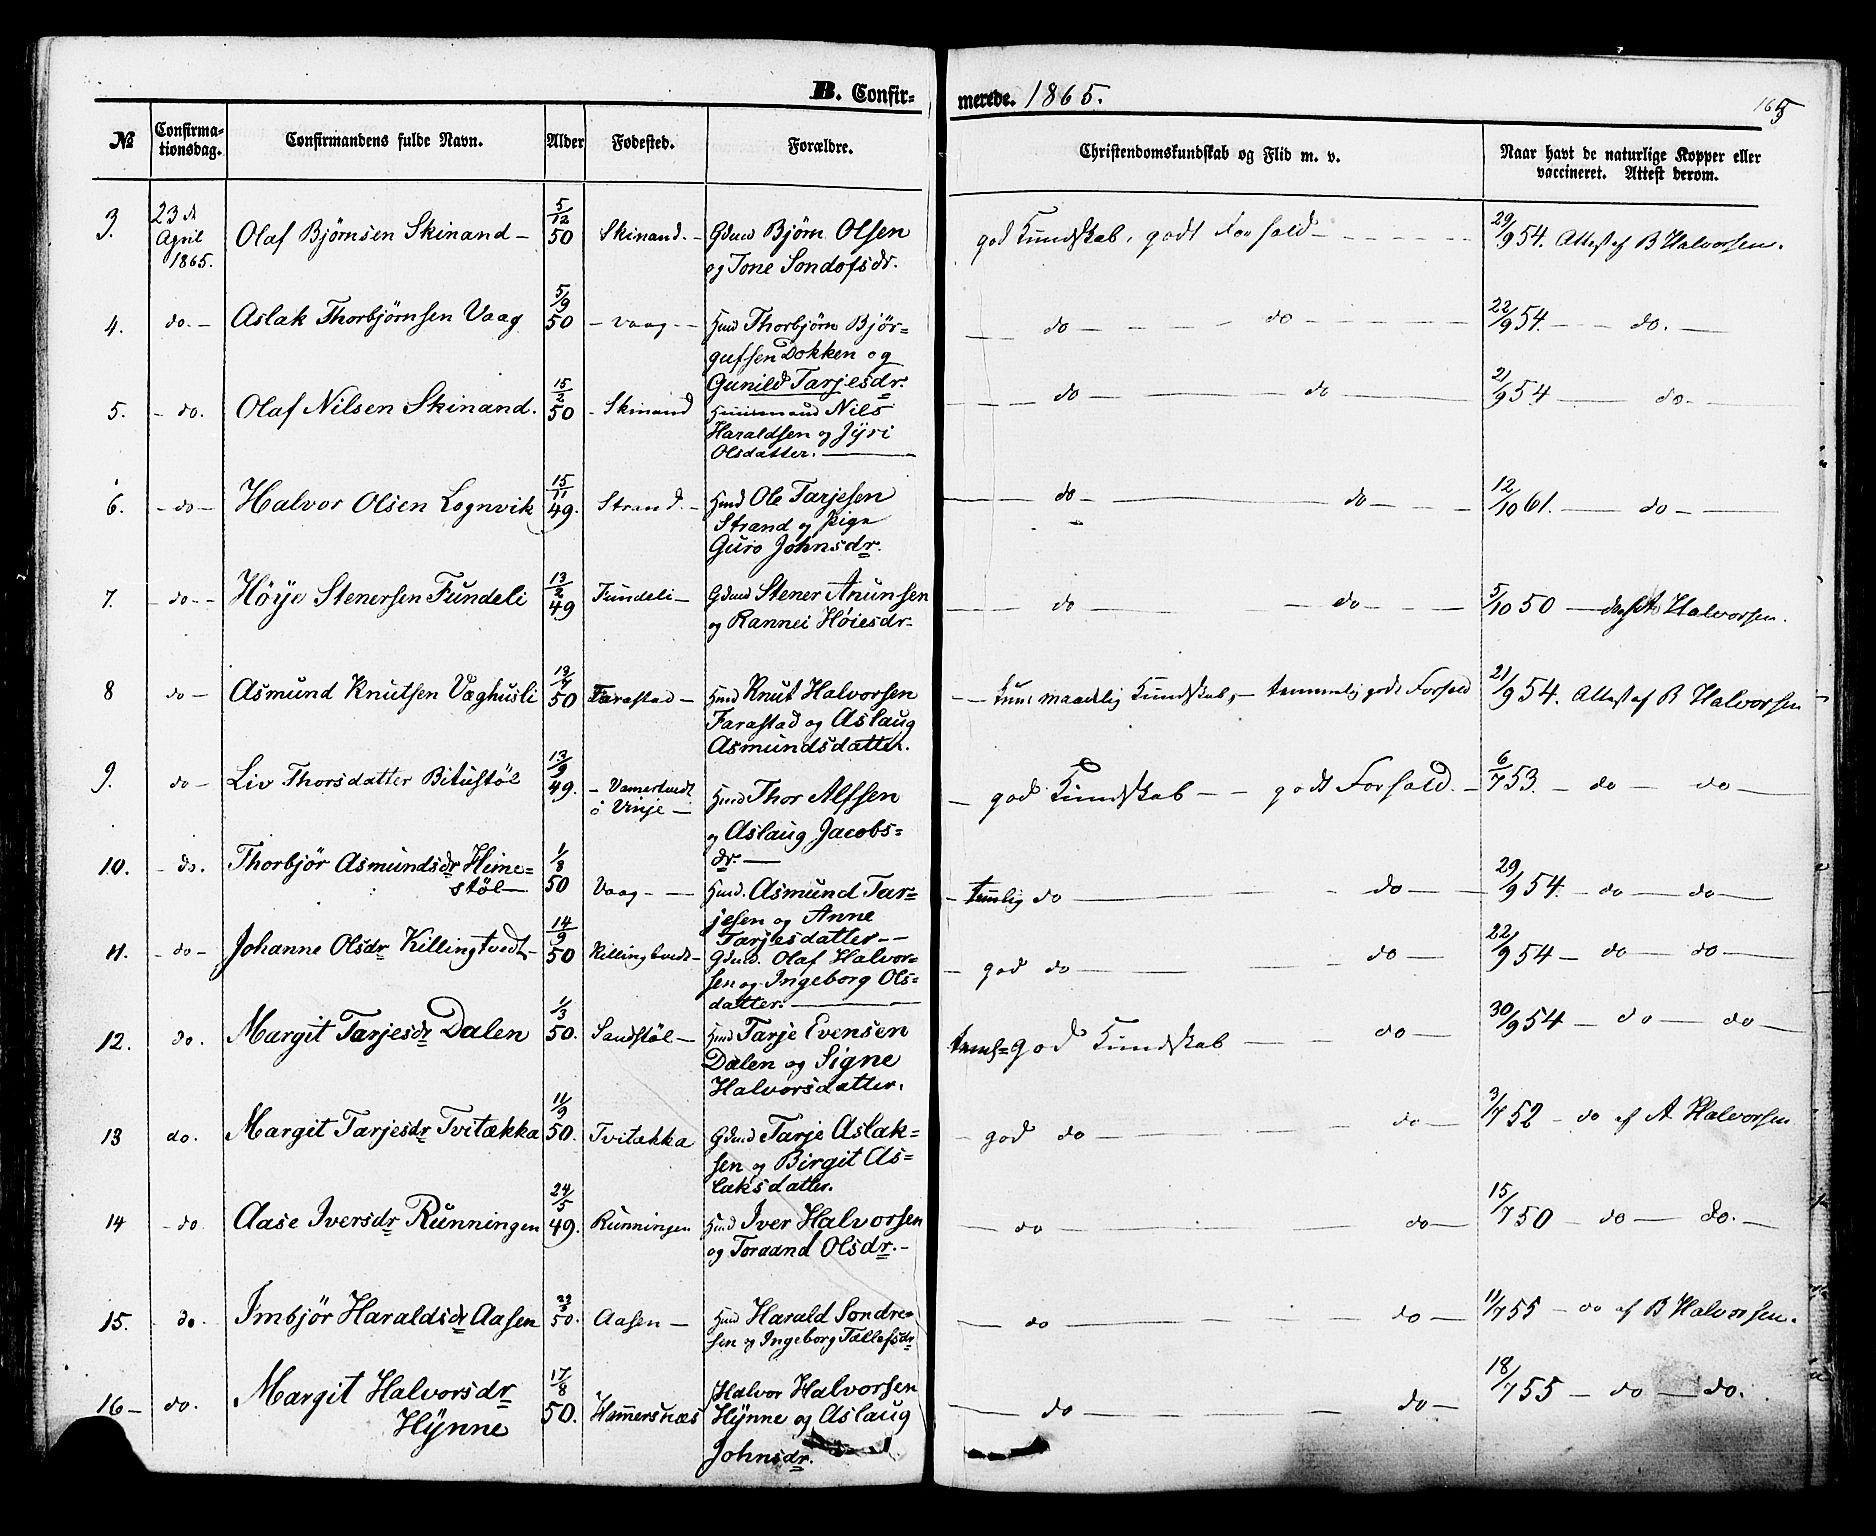 B. Confir- merede. 1865.
165
№ Confirma-tionsdag. Confirmandens fulde Navn. Alder Fødested. Forældre. Christendomskundskab og Flid m. v. Naar havt de naturlige Kopper eller vaccineret. Attest derom.
3. 23 d April 1865. Olaf Bjørnsen Skinand – 5/12 50 Skinand. – Gdmd Bjørn Olsen og Tone Sondofsdr. god Kundskab, godt Forhold – – – – – 29/9 54. Attest af B Halvorsen.
4. do. – Aslak Thorbjørnsen Vaag 5/9 50 – Vaag – – Hmd Thorbjørn Bjør-gufsen Dokken og Gunild Tarjesdr. – do – – – – do – – – – 22/9 54. – – do. –
5. – do. Olaf Nilsen Skinand. 15/2 50 – Skinand Huusmand Nils Haraldsen og Jyri Olsdatter. – do – do – 21/9 54 – do. –
6. – do – Halvor Olsen Lognvik 15/11 49. Strand. – Hmd Ole Tarjesen Strand og Pige Guro Johnsdr. – do – do – – – 12/10 61. – do – –
7. – do – – Høije Stenersen Fundeli 13/2 49 Fundeli – Gdmd Stener Anunsen og Rannei Høiesdr – – do – – do – – – 5/10 50 – A Halvorsen.
8 do – Asmund Knutsen Væghusli 13/7 50 Farastad – Hmd Knut Halvorsen Farastad og Aslaug Asmundsdatter. – – kun maadelig Kundskab, – temmelig godt Forhold 21/9 54. Attest af B Halvorsen
9. do – Liv Thorsdatter Bitustøl 13/9 49. – Vamertvedt i Vinje – Hmd Thor Alfsen og Aslaug Jacobs=dr. – – god Kundskab – – godt Forhold. – 6/7 53. – do – do –
10. – do. Thorbjør Asmundsdr Heime=støl – 1/8 50 Vaag – – Hmd. Asmund Tar=jesen og Anne Tarjesdatter – – – temlig do – – – do – – 29/9 54. – do – do –
11. – do – Johanne Olsdr Killingtvedt – 14/9 50 Killingtvedt – Gdmd. Olaf Halvor=sen og Ingeborg Ols=datter. – – god do – – – do – 22/9 54 – do – do –
12. do. Margit Tarjesdr Dalen 1/3 50. Sandstøl – Hmd Tarje Evensen Dalen og Signe Halvorsdatter. teml= god Kundskab – – – do – 30/9 54 – do – do –
13 do. Margit Tarjesdr Tvitækka 11/9 50. Tvitækka Gdmd Tarje Aslak=sen og Birgit As=laksdatter. – god do – – – do – 3/7 52 – do af A Halvorsen
14 – do Aase Iversdr Runningen 24/5 49. Runningen Hmd Iver Halvorsen og Toraand Olsdr. – – do – – – do – 15/7 50 – do – do. –
15. – do. Imbjør Haraldsdr Aasen 50. Aasen – Hmd Harald Sondre=sen og Ingeborg Tallefsdr – do – – – do – 11/7 55 – do af B Halvorsen.
16 – do. Margit Halvorsdr Hynne 17/8 50. Hamersnæs Halvor Halvorsen Hynne og Aslaug Johnsdr. – do – – – do – 18/7 55 – do – do.